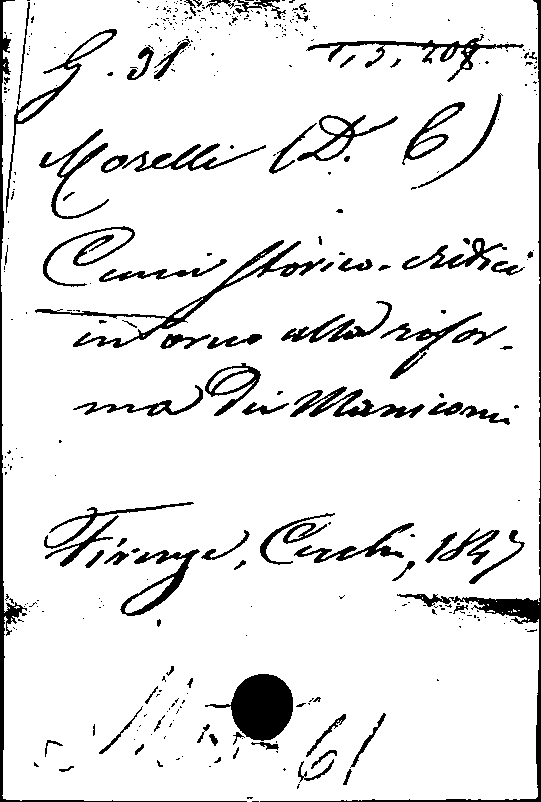 G. 31 1, 3, 208.
Morelli (D. C)
Cenni storico-critici
intorno alla rifor-
ma dei Manicomi
Firenze, Cecchi, 1847
61